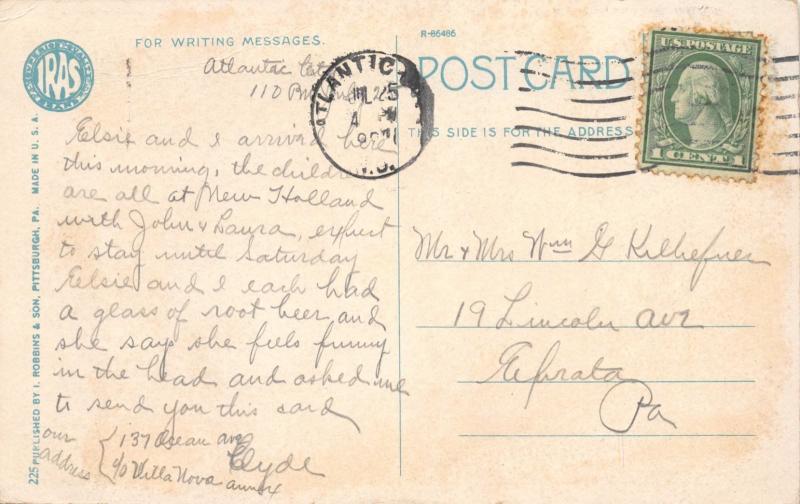 FOR WRITING MESSAGES.
Atlantic City
110
Elsie and I arrived here
this morning, the children
are all at New Holland
with John & Laura, expect
to stay until Saturday
Elsie and I each had
a glass of root beer and
she says she feels funny
in the head and asked me
to send you this card
Clyde
our address { 137 Ocean ave
c/o Villa Nova annex
R-86486
POST CARD
THIS SIDE IS FOR THE ADDRESS
ATLANTIC
N.J.
U.S. POSTAGE
1 CENT 1
Mr & Mrs Wm G Kilhefner
19 Lincoln ave
Ephrata
Pa
IRAS
225 PUBLISHED BY I. ROBBINS & SON, PITTSBURGH, PA. MADE IN U.S.A.